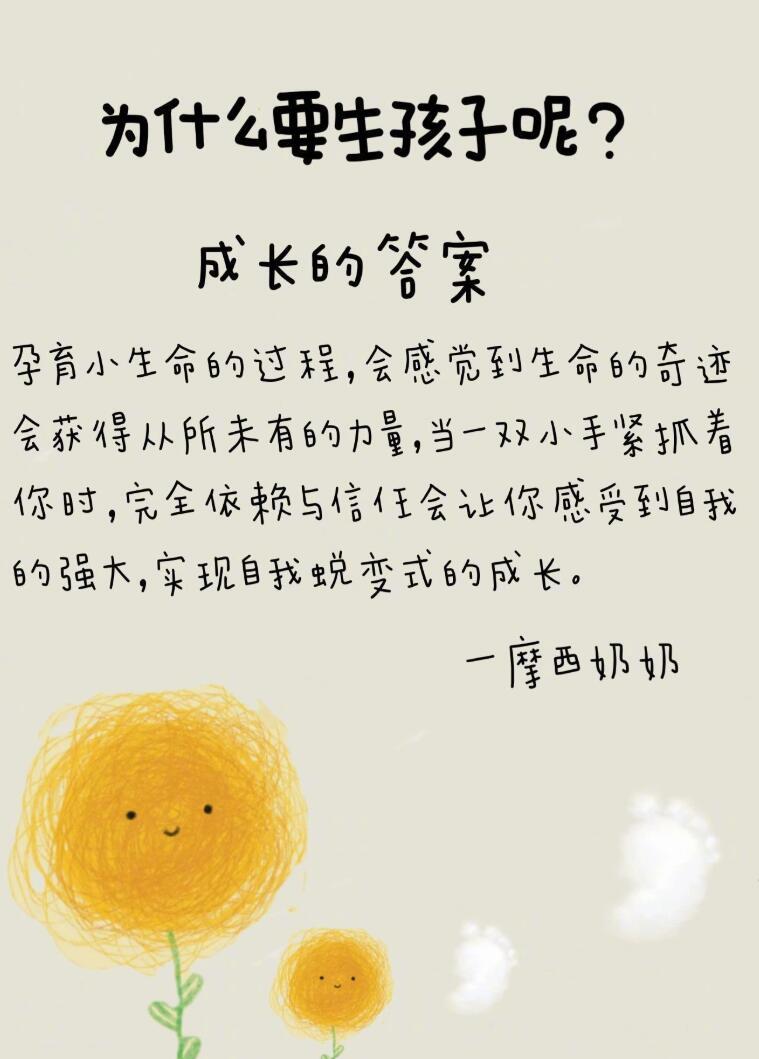 为什么要生孩子呢?
成长的答案
孕育小生命的过程,会感觉到生命的奇迹
会获得从所未有的力量,当一双小手紧抓着
你时,完全依赖与信任会让你感受到自我
的强大,实现自我蜕变式的成长。
一摩西奶奶